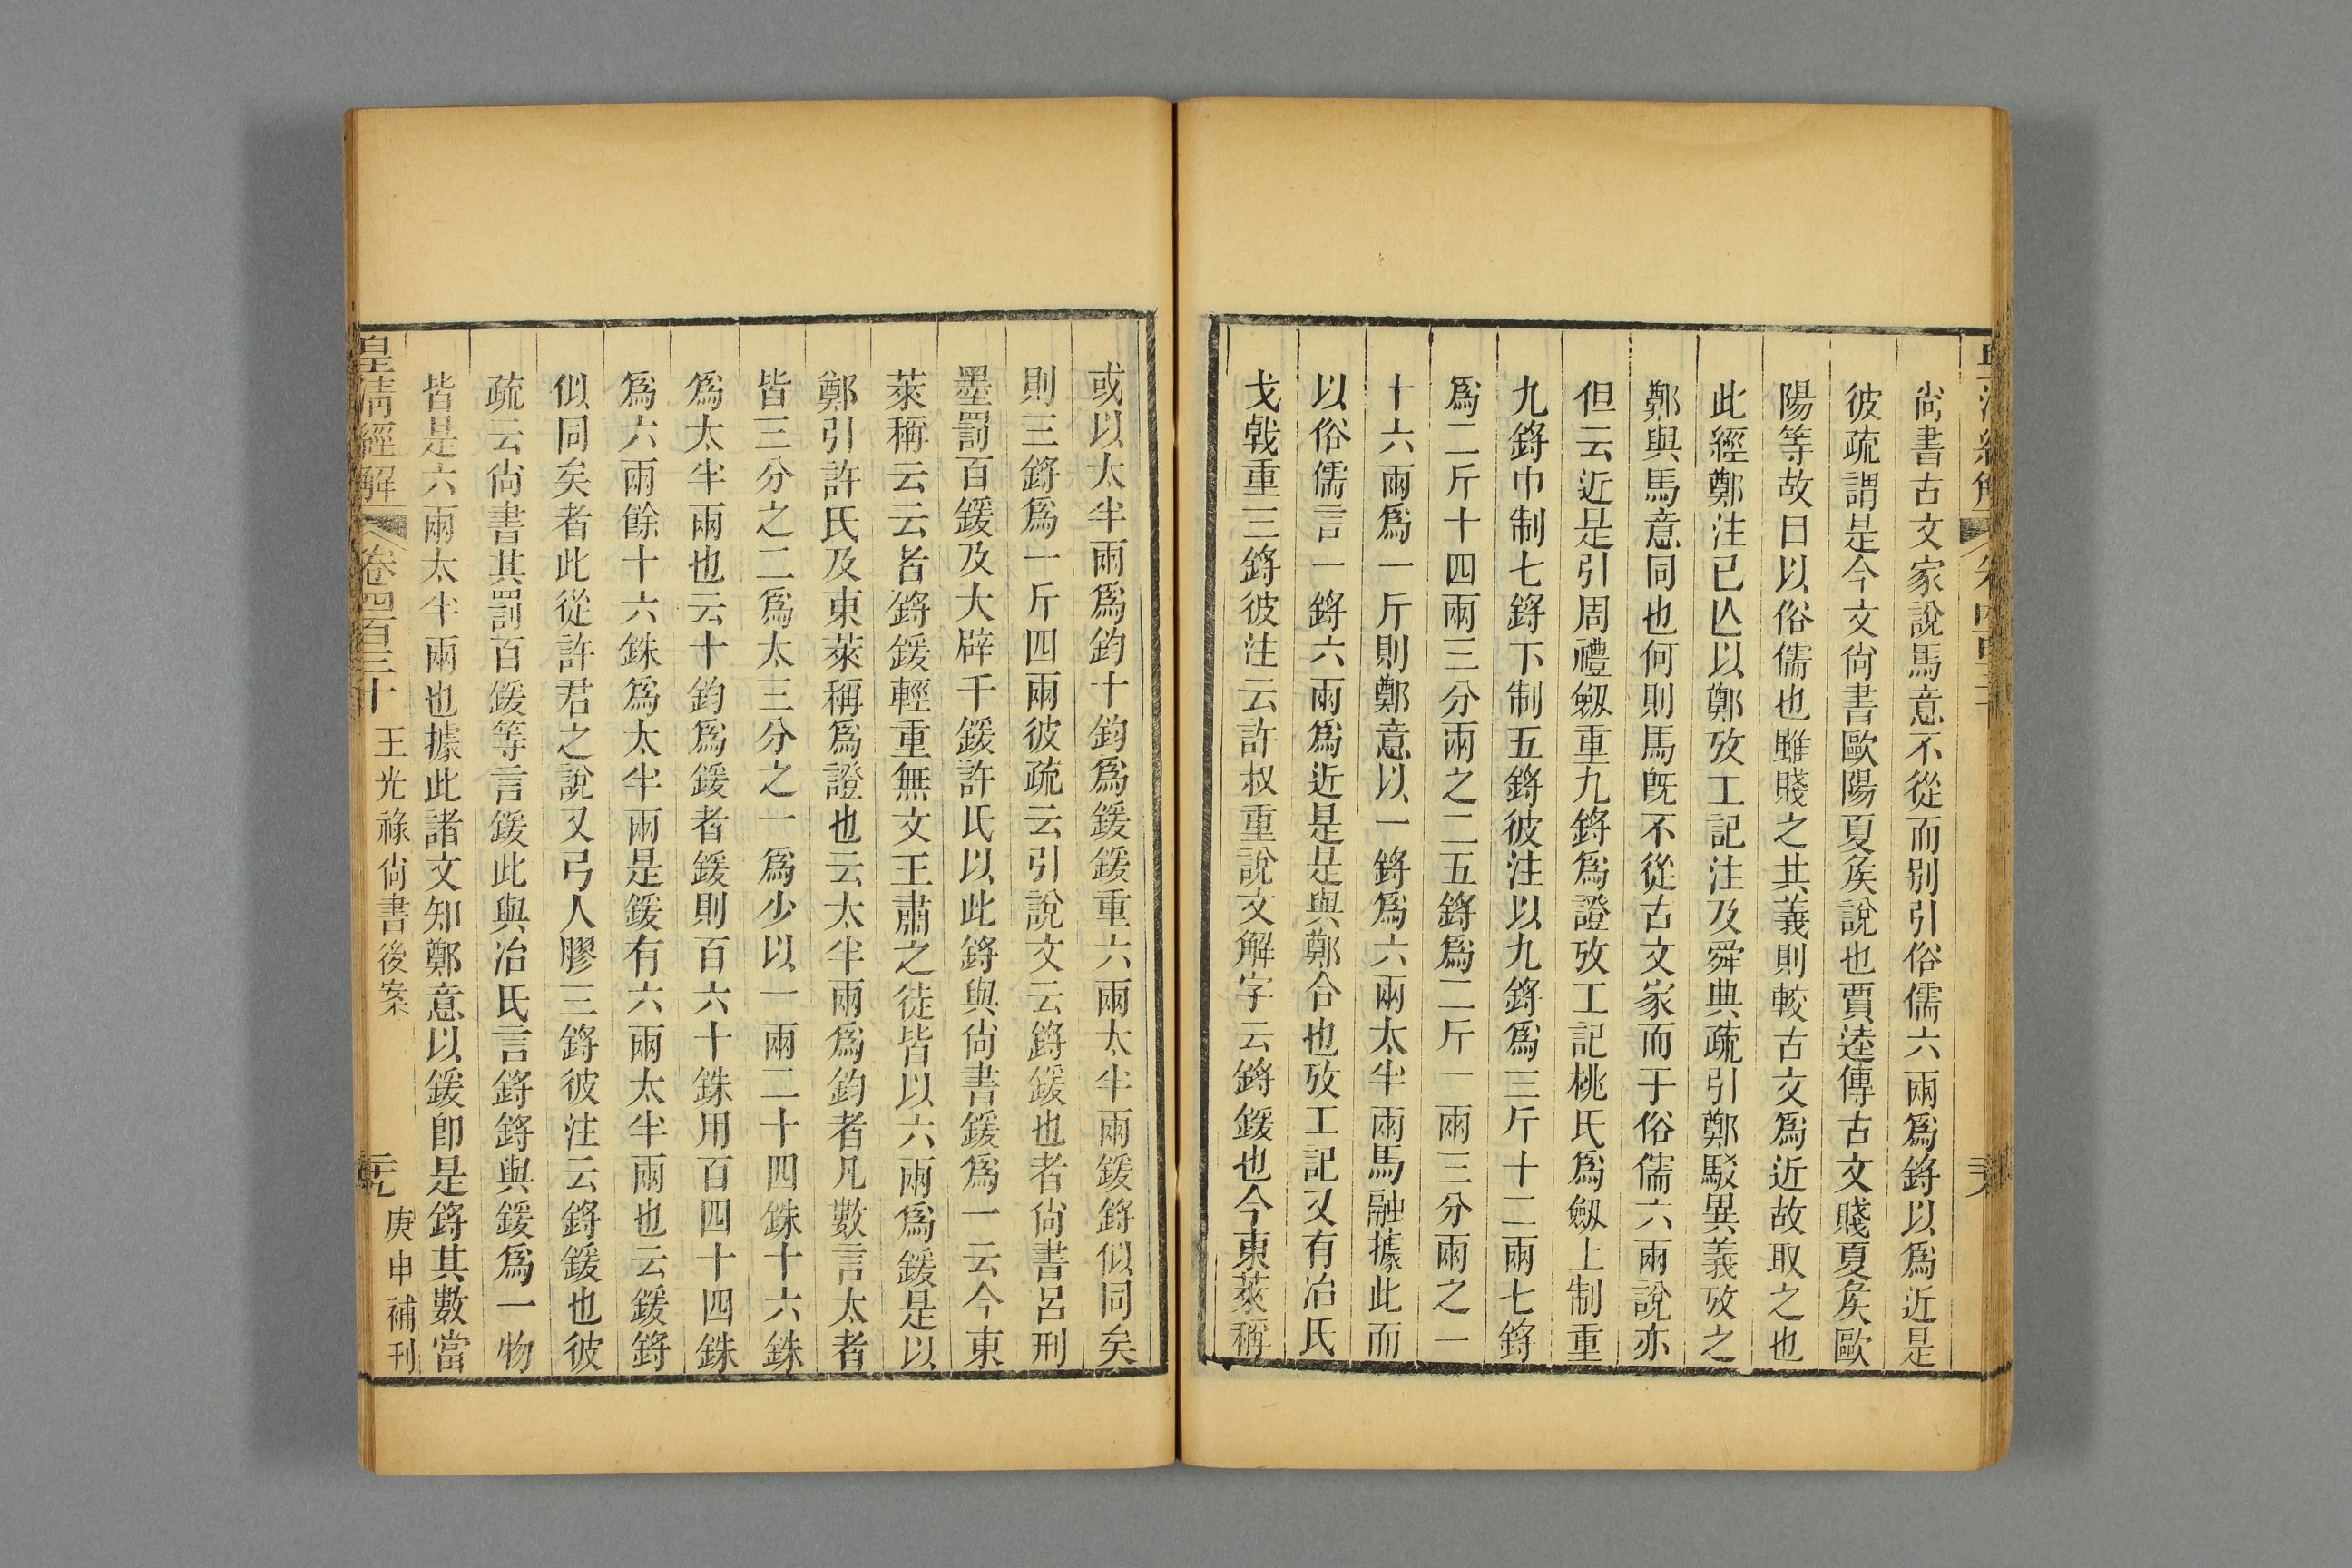 尙書古文家說馬意不從而別引俗儒六兩爲鋝以爲近是
彼疏謂是今文尙書歐陽夏矦說也賈逵傳古文賤夏矦歐
陽等故目以俗儒也雖賤之其義則較古文爲近故取之也
此經鄭注已亾以鄭攷工記注及舜典疏引鄭駁異義攷之
鄭與馬意同也何則馬旣不從古文家而于俗儒六兩說亦
但云近是引周禮劔重九鋝爲證攷工記桃氏爲劔上制重
九鋝巾制七鋝下制五鋝彼注以九鋝爲三斤十二兩七鋝
爲二斤十四兩三分兩之二五鋝爲二斤一兩三分兩之一
十六兩爲一斤則鄭意以一鋝爲六兩太半兩馬融據此而
以俗儒言一鋝六兩爲近是是與鄭合也攷工記又有冶氏
戈戟重三鋝彼注云許叔重說文解字云鋝鍰也今東萊稱
或以太半兩爲鈞十鈞爲鍰鍰重六兩太半兩鍰鋝似同矣
則三鋝爲一斤四兩彼疏云引說文云鋝鍰也者尙書呂刑
墨罰百鍰及大辟千鍰許氏以此鋝與尙書鍰爲一云今東
萊稱云云者鋝鍰輕重無文王肅之徒皆以六兩爲鍰是以
鄭引許氏及東萊稱爲證也云太半兩爲鈞者凡數言太者
皆三分之二爲太三分之一爲少以一兩二十四銖十六銖
爲太半兩也云十鈞爲鍰者鍰則百六十銖用百四十四銖
爲六兩餘十六銖爲太半兩是鍰有六兩太半兩也云鍰鋝
似同矣者此從許君之說又弓人膠三鋝彼注云鋝鍰也彼
疏云尙書其罰百鍰等言鍰此與冶氏言鋝鋝與鍰爲一物
皆是六兩太半兩也據此諸文知鄭意以鍰卽是鋝其數當
皇淸經解 卷四百三十 王光祿尙書後案 元 庚申補刊